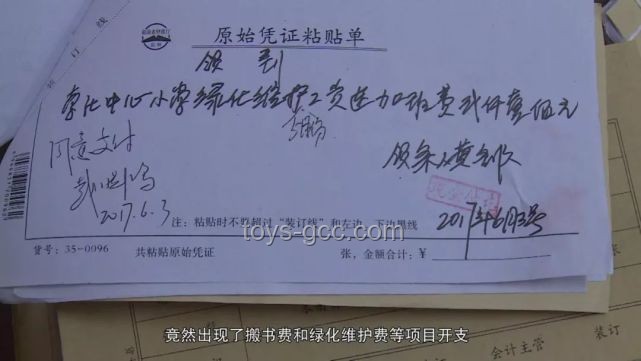 装订线
原始凭证粘贴单
领到
中心小学绿化维护工资及加班费
元
同意支付
领条人
2017.6.3
2017年6月3号
注：粘贴时不要超过“装订线”和左边、下边黑线
toys-gcc.com
货号：35-0096
共粘贴原始凭证
张，金额合计：¥
竟然出现了搬书费和绿化维护费等项目开支
会计主管
装订